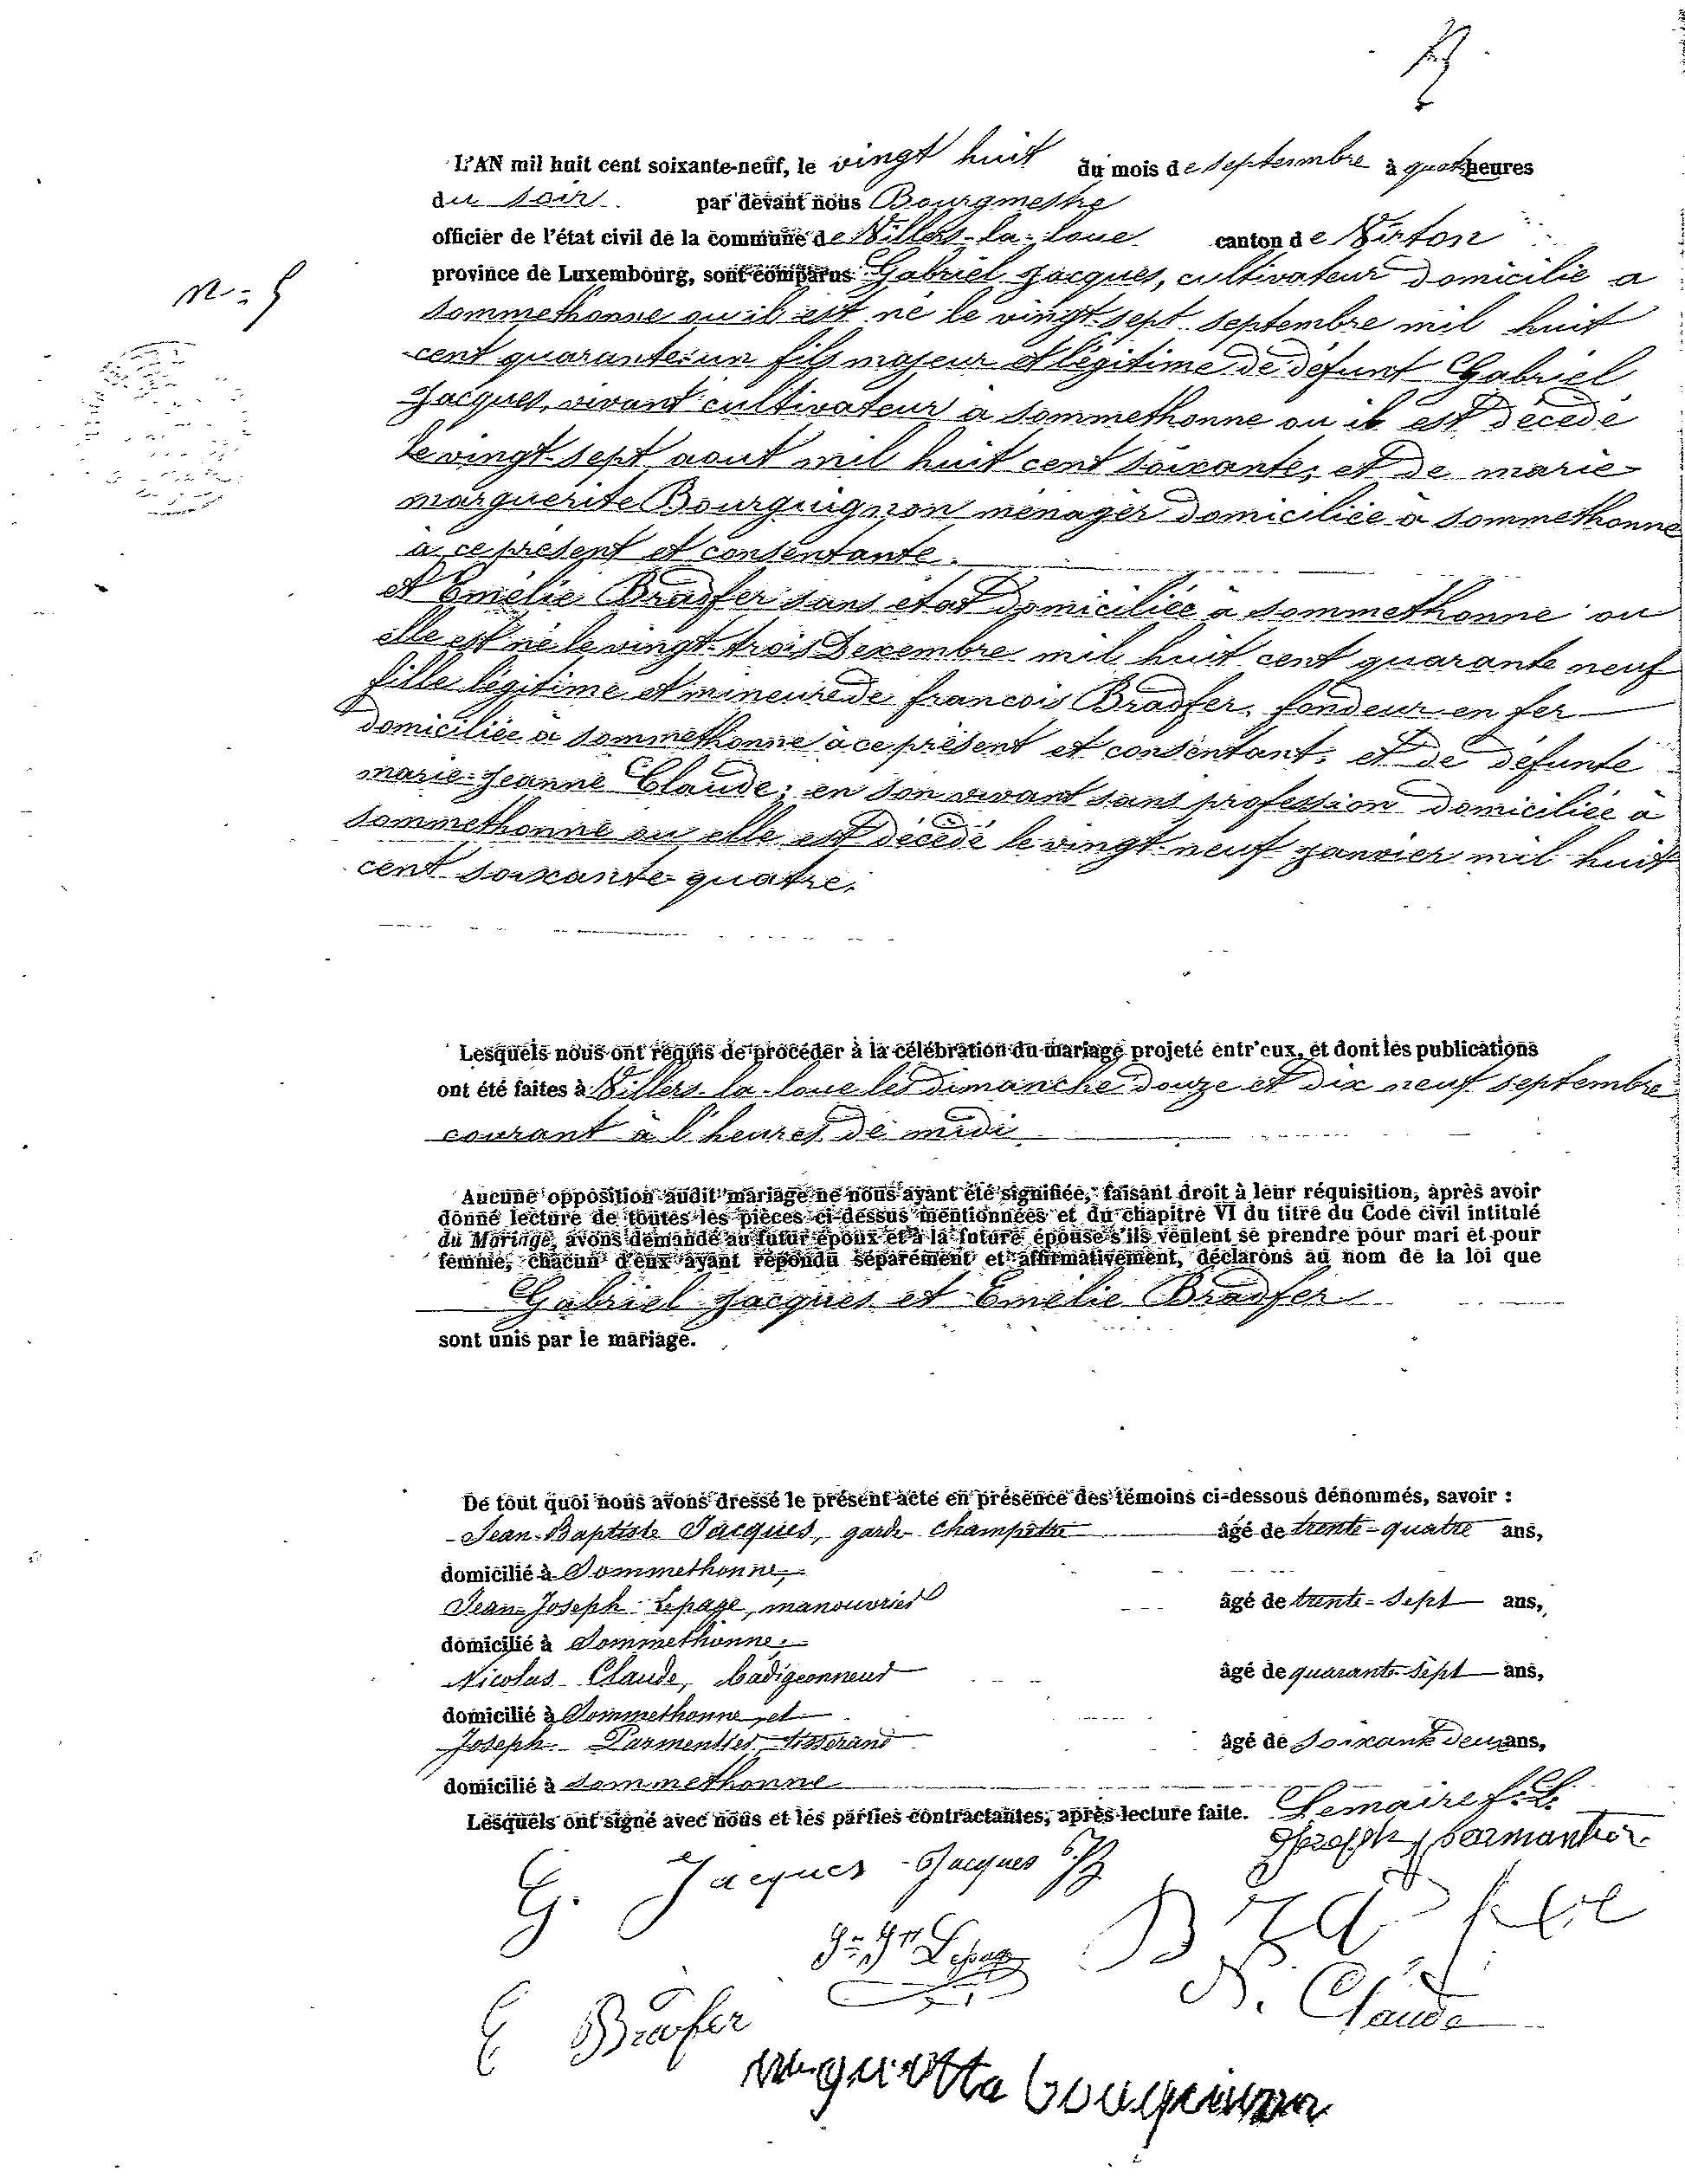 L'AN mil huit cent soixante-neuf, le vingt huit du mois de septembre à quatre heures
du soir par devant nous Bourgmestre
officier de l'état civil de la commune de Villers-la-loue canton de Virton
province de Luxembourg, sont comparus Gabriel Jacques, cultivateur domicilie a
n=5
sommethonne ou il est né le vingt-sept septembre mil huit
cent quarante-un fils majeur et légitime de défunt Gabriel
Jacques, vivant cultivateur a sommethonne ou il est décédé
le vingt-sept aout mil huit cent soixante, et de marie-
marguerite Bourguignon ménagèr domiciliée à sommethonne
à ce présent et consentante.
et Emélie Bradfer sans état domiciliée à sommethonne ou
elle est né le vingt-trois Dexembre mil huit cent quarante neuf
fille légitime et mineure de francois Bradfer, fondeur en fer
domiciliée à sommethonne à ce présent et consentant, et de défunte
marie-Jeanne Claude; en son vivant sans profession domiciliée à
sommethonne ou elle est décédé le vingt-neuf janvier mil huit
cent soixante-quatre.
Lesquels nous ont requis de procéder à la célébration du mariage projeté entr'eux, et dont les publications
ont été faites à Villers-la-loue les dimanche douze et dix neuf septembre
courant à l'heures de midi
Aucune opposition audit mariage ne nous ayant été signifiée, faisant droit à leur réquisition, après avoir
donné lecture de toutes les pièces ci-dessus mentionnées et du chapitre VI du titre du Code civil intitulé
du Mariage, avons demandé au futur époux et à la future épouse s'ils veulent se prendre pour mari et pour
femme, chacun d'eux ayant répondu séparément et affirmativement, déclarons au nom de la loi que
Gabriel Jacques et Emélie Bradfer
sont unis par le mariage.
De tout quoi nous avons dressé le présent acte en présence des témoins ci-dessous dénommés, savoir :
Jean-Baptiste Jacques, garde champêtre âgé de trente-quatre ans,
domicilié à Sommethonne,
Jean-Joseph Lepage, manouvrier âgé de trente-sept ans,
domicilié à Sommethonne.
Nicolas Claude, badigeonneur âgé de quarante-sept ans,
domicilié à Sommethonne, et
Joseph Parmentier tisserand âgé de soixante deux ans,
domicilié à sommethonne
Lesquels ont signé avec nous et les parties contractantes, après lecture faite. Lemaire f. L.
Joseph parmantier
G. Jacques Jacques JB
Jn Jh Lepage Bradfer
N. Claude
E Bradfer